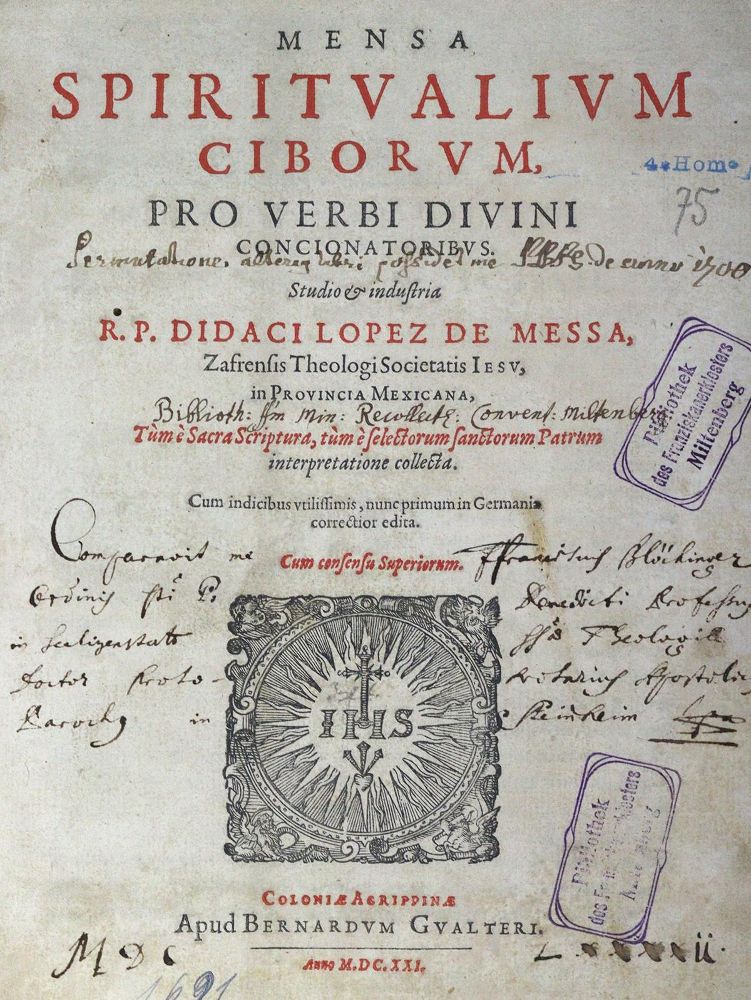 MENSA
SPIRITVALIVM
CIBORVM,
4° Hom.
75
PRO VERBI DIVINI
CONCIONATORIBVS.
Permutatione, alterius libri possidet me de anno 1700
Studio & industria
R. P. DIDACI LOPEZ DE MESSA,
Zafrensis Theologi Societatis IESV,
in PROVINCIA MEXICANA,
Biblioth: Min: Recollect: Convent: Miltenberg
Bibliothek
des Franziskanerklosters
Miltenberg
Tùm è Sacra Scriptura, tùm è selectorum sanctorum Patrum
interpretatione collecta.
Cum indicibus vtilissimis, nunc primum in Germania
correctior edita.
Cum consensu Superiorum.
Comparavit me Franciscus Blöchinger
Ordinis sti P. Benedicti Professus
in Seeligenstatt Theologiæ
Doctor Proto-
Parochus in Steinheim
IHS
Bibliothek
COLONIÆ AGRIPPINÆ
Apud BERNARDVM GVALTERI.
MDC
Anno M.DC.XXI.
1691